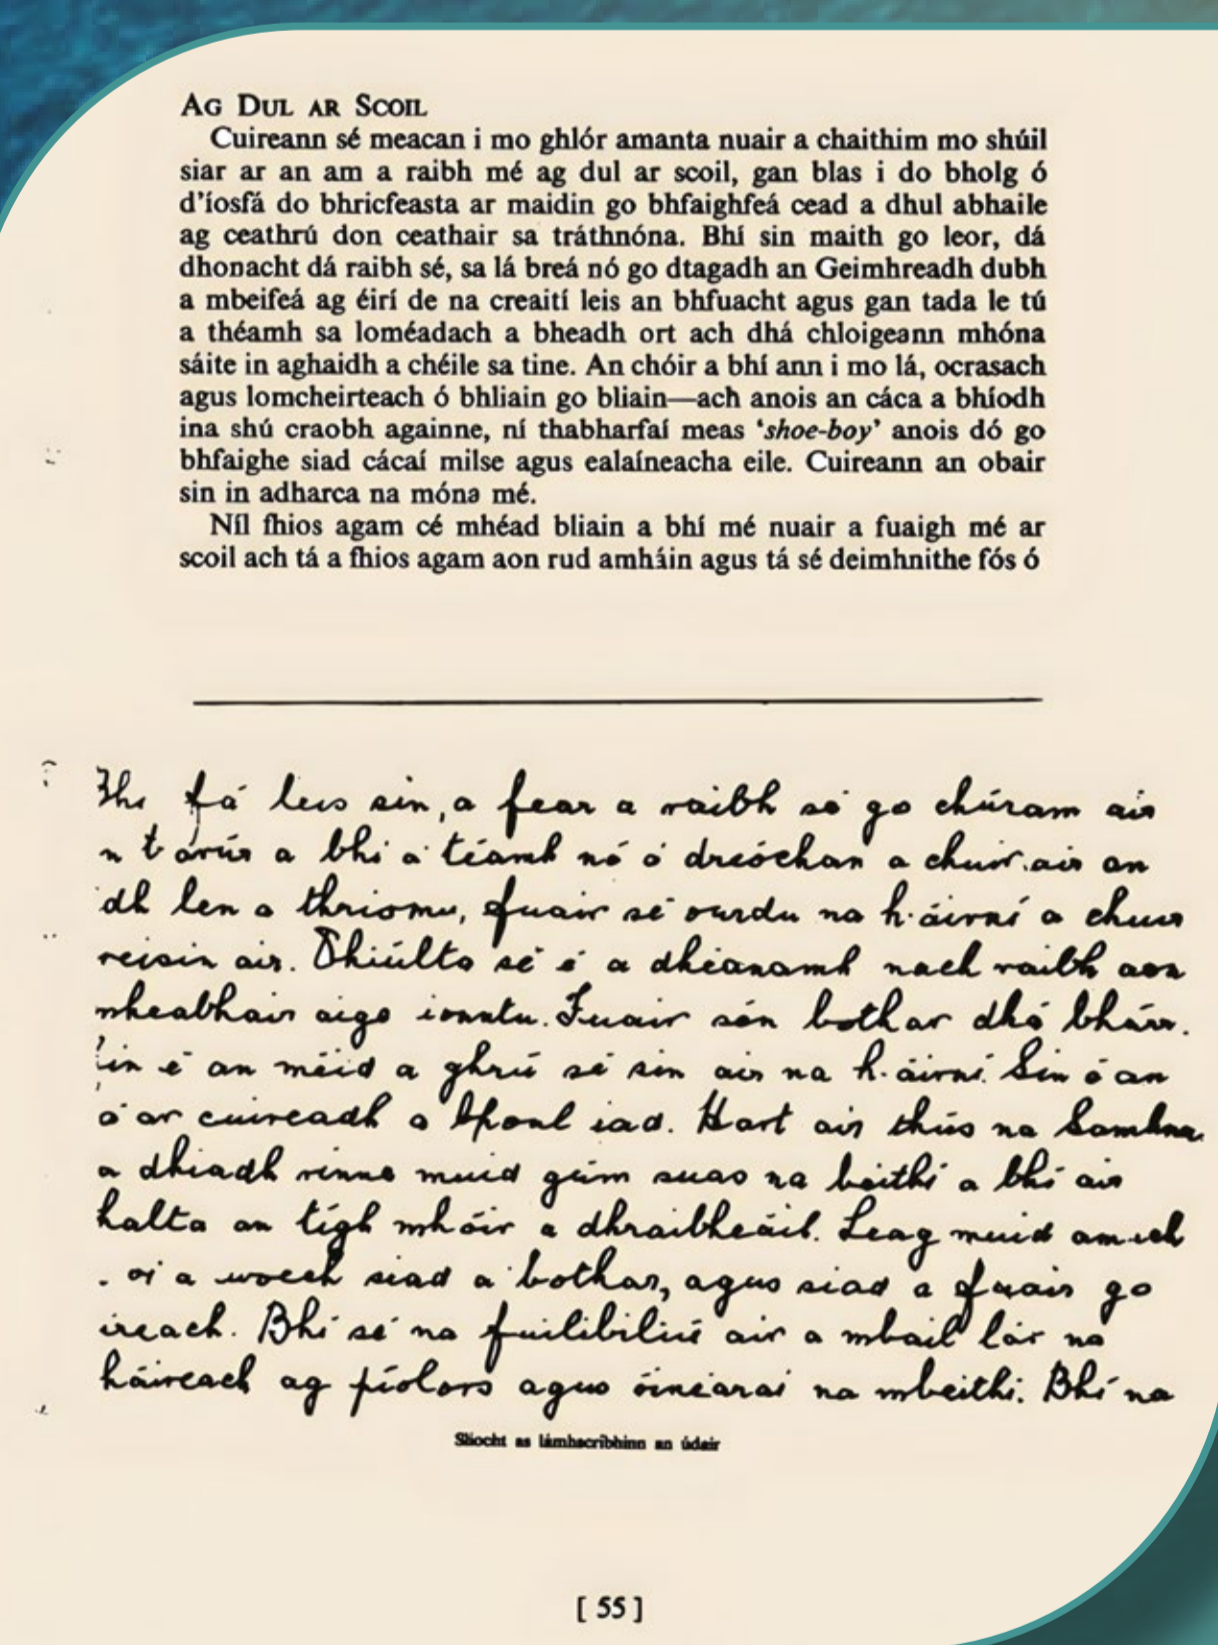 AG DUL AR SCOIL
Cuireann sé meacan i mo ghlór amanta nuair a chaithim mo shúil
siar ar an am a raibh mé ag dul ar scoil, gan blas i do bholg ó
d'íosfá do bhricfeasta ar maidin go bhfaighfeá cead a dhul abhaile
ag ceathrú don ceathair sa tráthnóna. Bhí sin maith go leor, dá
dhonacht dá raibh sé, sa lá breá nó go dtagadh an Geimhreadh dubh
a mbeifeá ag éirí de na creaití leis an bhfuacht agus gan tada le tú
a théamh sa loméadach a bheadh ort ach dhá chloigeann mhóna
sáite in aghaidh a chéile sa tine. An chóir a bhí ann i mo lá, ocrasach
agus lomcheirteach ó bhliain go bliain—ach anois an cáca a bhíodh
ina shú craobh againne, ní thabharfaí meas 'shoe-boy' anois dó go
bhfaighe siad cácaí milse agus ealaíneacha eile. Cuireann an obair
sin in adharca na móna mé.
Níl fhios agam cé mhéad bliain a bhí mé nuair a fuaigh mé ar
scoil ach tá a fhios agam aon rud amháin agus tá sé deimhnithe fós ó
fá leis sin, a fear a raibh sé go chúram air
a bhí a téamh nó ó dreóchan a chuir air an
dh len a thriomu, fuair sé ourdu na h-áirní a chuir
reisin air. Dhiúlta sé é a dhéanamh nach raibh aon
mheabhair aige ionntu. Fuair són bothar dhó bhárr.
in é an méid a ghrú sé sin air na h-áirní. Sin ó an
ó ar cuireadh a bpoul iad. Start air thús na Samhna
a dhiadh rinne muid gúm suas na beithí a bhí air
halta an tígh mhóir a dhraibheáil. Leag muid amach
siad a bothar, agus siad a fuair go
ireach. Bhí sé na fuilibiliú air a mbail lár na
háireach ag píolors agus óinéaraí na mbeithí. Bhí na
Sliocht as lámhscríbhinn an údair
[ 55 ]